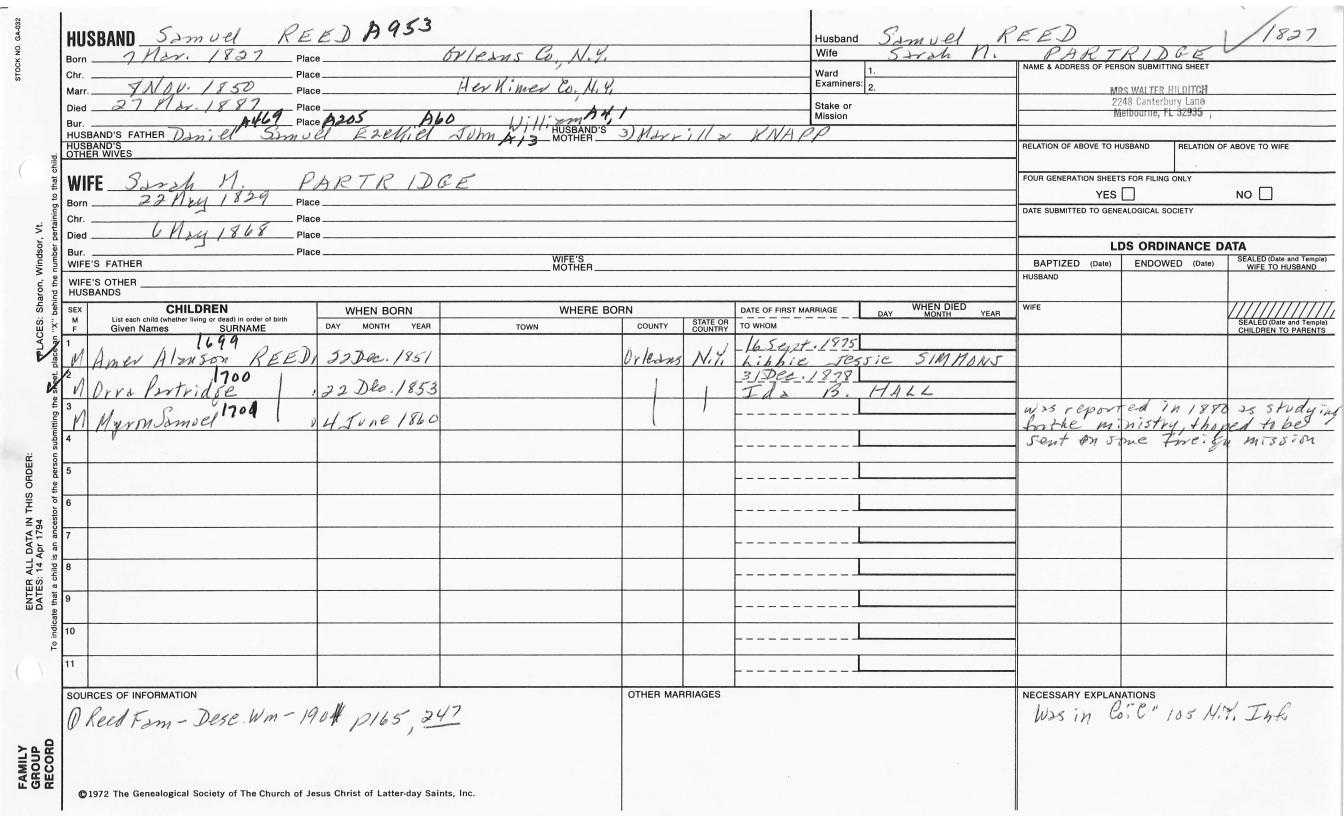 STOCK NO. GA-032
HUSBAND Samuel REED A953
Born 7 Mar. 1827 Place Orleans Co., N.Y.
Chr. Place
Marr. 7 Nov. 1850 Place Herkimer Co., N.Y.
Died 27 Mar. 1887 Place
Bur. A469 Place A205 A60 A4,1
HUSBAND'S FATHER Daniel Samuel Ezekiel John A13 William HUSBAND'S MOTHER 3) Marrilla KNAPP
HUSBAND'S OTHER WIVES
Husband Samuel REED 1827
Wife Sarah M. PARTRIDGE
Ward Examiners: 1. 2.
Stake or Mission
NAME & ADDRESS OF PERSON SUBMITTING SHEET
MRS WALTER HILDITCH
2248 Canterbury Lane
Melbourne, FL 32935
RELATION OF ABOVE TO HUSBAND RELATION OF ABOVE TO WIFE
FOUR GENERATION SHEETS FOR FILING ONLY
YES NO
DATE SUBMITTED TO GENEALOGICAL SOCIETY
WIFE Sarah M. PARTRIDGE
Born 22 May 1829 Place
Chr. Place
Died 6 May 1868 Place
Bur. Place
WIFE'S FATHER WIFE'S MOTHER
WIFE'S OTHER HUSBANDS
LDS ORDINANCE DATA
BAPTIZED (Date) ENDOWED (Date) SEALED (Date and Temple) WIFE TO HUSBAND
HUSBAND
WIFE
SEALED (Date and Temple) CHILDREN TO PARENTS
SEX M F CHILDREN WHEN BORN WHERE BORN DATE OF FIRST MARRIAGE WHEN DIED
List each child (whether living or dead) in order of birth
Given Names SURNAME DAY MONTH YEAR TOWN COUNTY STATE OR COUNTRY TO WHOM DAY MONTH YEAR
1 1699 16 Sept. 1875
M Amer Alanson REED 22 Dec. 1851 Orleans N.Y. Libbie Jessie SIMMONS
2 1700 31 Dec. 1878
M Orra Partridge 22 Dec. 1853 Ida B. HALL
3 1701
M Myron Samuel 4 June 1860
was reported in 1880 as studying
for the ministry, & hoped to be
sent on some foreign mission
4
5
6
7
8
9
10
11
SOURCES OF INFORMATION
① Reed Fam - Desc. Wm - 1901 p165, 247
OTHER MARRIAGES
NECESSARY EXPLANATIONS
Was in Co. "C" 105 N.Y. Inf.
©1972 The Genealogical Society of The Church of Jesus Christ of Latter-day Saints, Inc.
FAMILY GROUP RECORD
ENTER ALL DATA IN THIS ORDER:
DATES: 14 Apr 1794
PLACES: Sharon, Windsor, Vt.
To indicate that a child is an ancestor of the person submitting the sheet, place an "X" behind the number pertaining to that child.